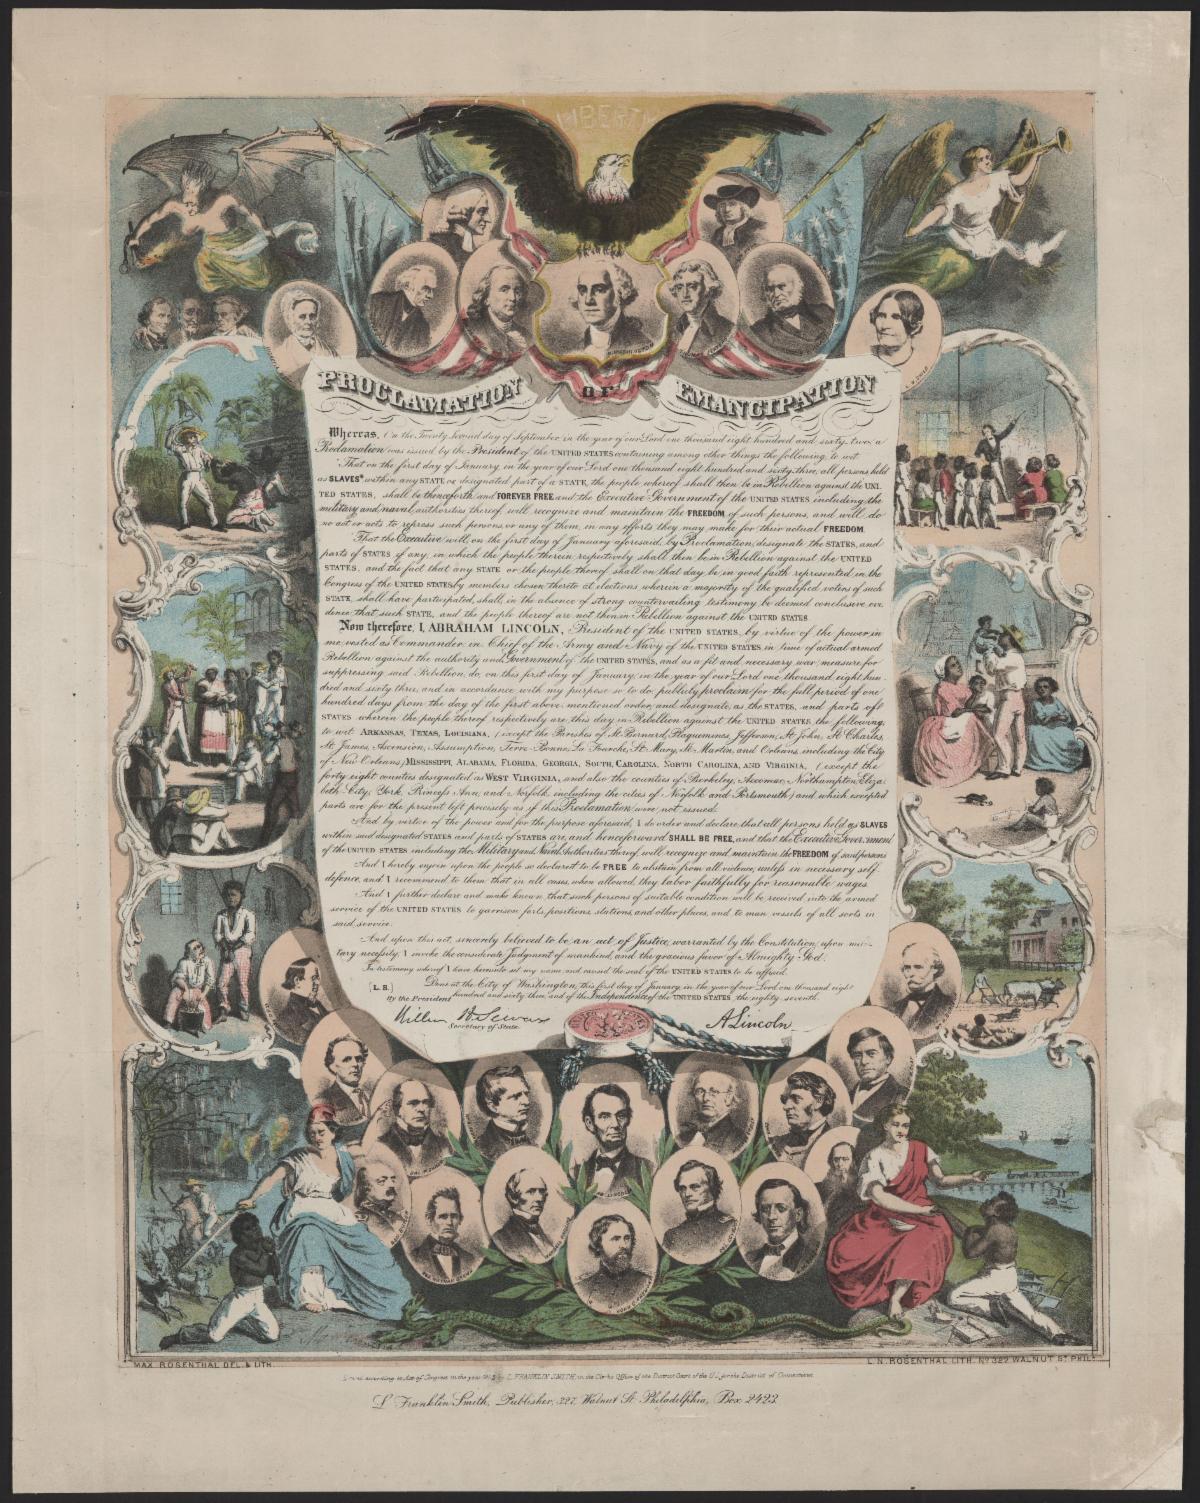 LIBERTY
PROCLAMATION OF EMANCIPATION
Whereas, On the Twenty Second day of September, in the year of our Lord one thousand eight hundred and sixty-two, a
Proclamation was issued by the President of the UNITED STATES containing among other things the following to wit:
That on the first day of January, in the year of our Lord one thousand eight hundred and sixty-three, all persons held
as SLAVES within any STATE or designated part of a STATE, the people whereof shall then be in Rebellion against the UNI-
TED STATES, shall be thenceforth and FOREVER FREE and the Executive Government of the UNITED STATES including the
military and naval authorities thereof, will recognize and maintain the FREEDOM of such persons, and will do
no act or acts to repress such persons, or any of them, in any efforts they may make for their actual FREEDOM.
That the Executive will, on the first day of January aforesaid, by Proclamation, designate the STATES, and
parts of STATES if any, in which the people therein respectively shall then be in Rebellion against the UNITED
STATES, and the fact that any STATE or the people thereof shall on that day be in good faith represented in the
Congress of the UNITED STATES by members chosen thereto at elections wherein a majority of the qualified voters of such
STATE shall have participated, shall, in the absence of strong countervailing testimony be deemed conclusive evi-
dence that such STATE, and the people thereof are not then in Rebellion against the UNITED STATES.
Now therefore, I, ABRAHAM LINCOLN, President of the UNITED STATES, by virtue of the power in
me vested as Commander in Chief of the Army and Navy of the UNITED STATES in time of actual armed
Rebellion against the authority and Government of the UNITED STATES, and as a fit and necessary war measure for
suppressing said Rebellion, do, on this first day of January, in the year of our Lord one thousand eight hun-
dred and sixty three, and in accordance with my purpose so to do, publicly proclaim for the full period of one
hundred days from the day of the first above mentioned order, and designate, as the STATES, and parts of
STATES wherein the people thereof respectively are this day in Rebellion against the UNITED STATES, the following,
to wit: ARKANSAS, TEXAS, LOUISIANA, (except the Parishes of St. Bernard, Plaquemines, Jefferson, St. John, St. Charles,
St. James, Ascension, Assumption, Terre Bonne, La Fourche, St. Mary, St. Martin, and Orleans, including the City
of New Orleans) MISSISSIPPI, ALABAMA, FLORIDA, GEORGIA, SOUTH CAROLINA, NORTH CAROLINA, AND VIRGINIA, (except the
forty eight counties designated as WEST VIRGINIA, and also the counties of Berkeley, Accomac, Northampton, Eliza-
beth City, York, Princess Ann, and Norfolk, including the cities of Norfolk and Portsmouth) and which excepted
parts are for the present left precisely as if this Proclamation were not issued.
And by virtue of the power and for the purpose aforesaid, I do order and declare that all persons held as SLAVES
within said designated STATES and parts of STATES are, and henceforward SHALL BE FREE, and that the Executive Government
of the UNITED STATES including the Military and Naval Authorities thereof, will recognize and maintain the FREEDOM of said persons
And I hereby enjoin upon the people so declared to be FREE to abstain from all violence, unless in necessary self-
defence, and I recommend to them that in all cases, when allowed, they labor faithfully for reasonable wages.
And I further declare and make known that such persons of suitable condition will be received into the armed
service of the UNITED STATES to garrison forts, positions, stations, and other places, and to man vessels of all sorts in
said service.
And upon this act, sincerely believed to be an act of Justice, warranted by the Constitution, upon mili-
tary necessity, I invoke the considerate Judgment of mankind, and the gracious favor of Almighty God.
In testimony whereof I have hereunto set my name, and caused the seal of the UNITED STATES to be affixed.
[L. S.] Done at the City of Washington, this first day of January, in the year of our Lord one thousand eight
By the President hundred and sixty three, and of the Independence of the UNITED STATES the eighty seventh.
William H. Seward A. Lincoln
Secretary of State.
MAX ROSENTHAL DEL. & LITH. L. N. ROSENTHAL LITH. No 322 WALNUT St. PHIL.
Entered according to Act of Congress in the year by L. FRANKLIN SMITH, in the Clerks Office of the District Court of the U.S. for the District of Connecticut.
L Franklin Smith, Publisher, 327, Walnut St. Philadelphia, Box 2423